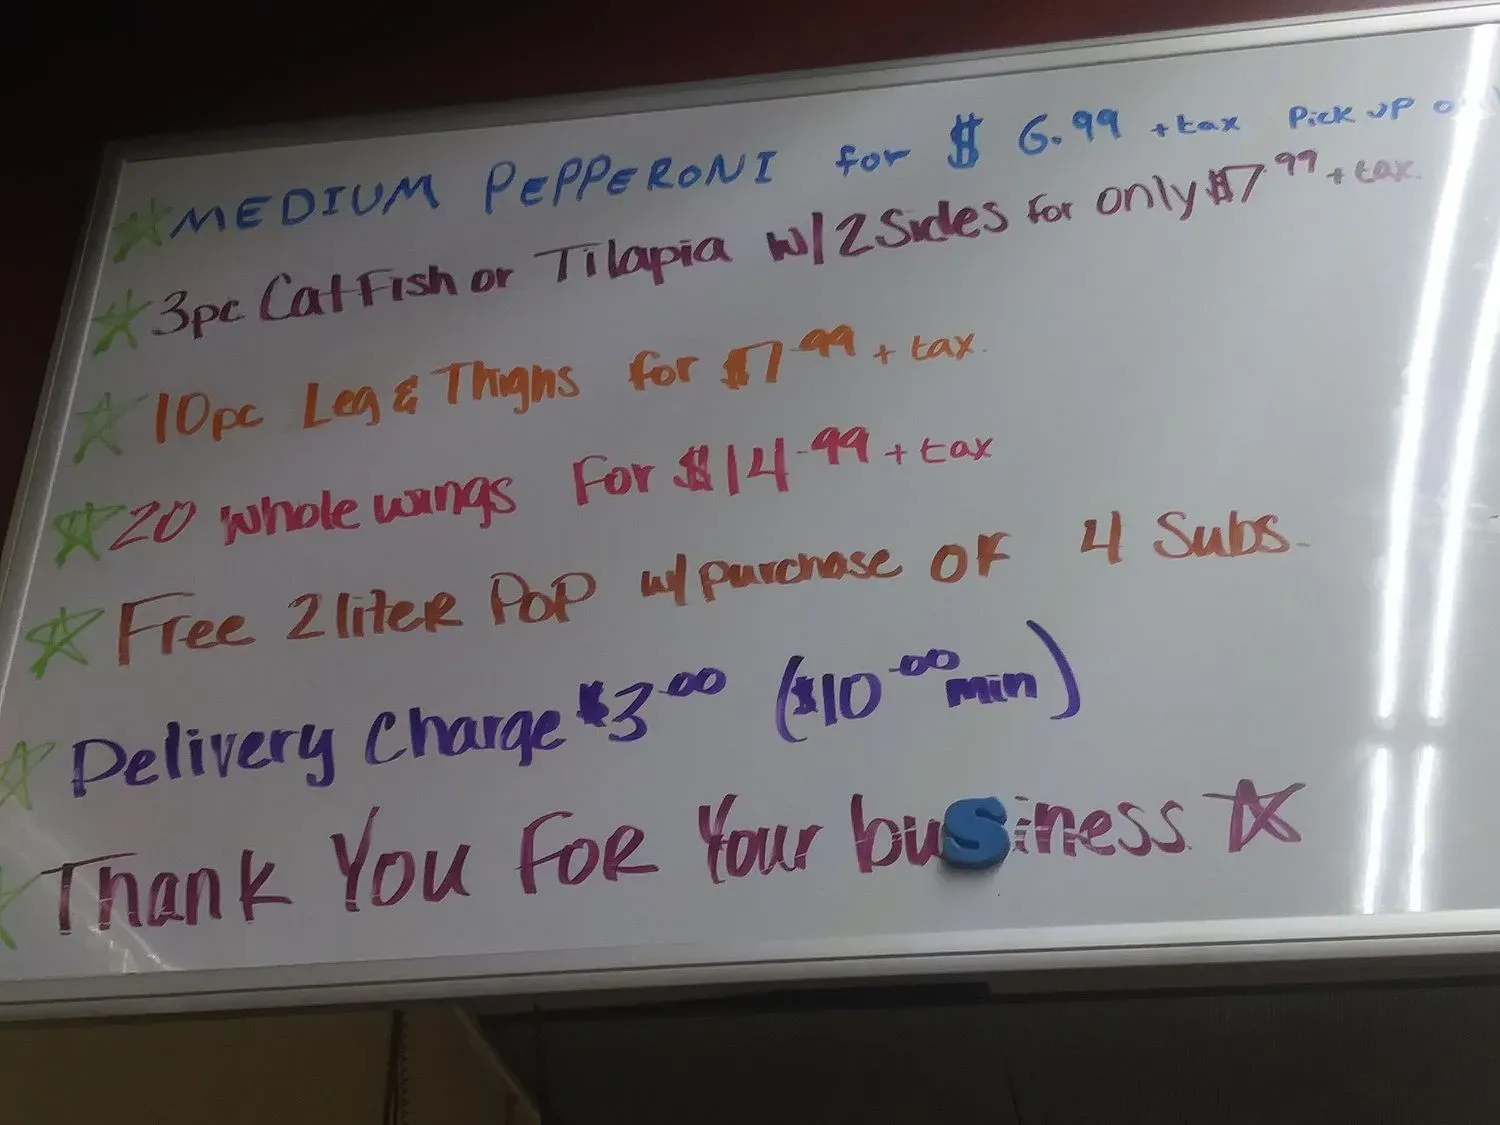 MEDIUM PEPPERONI for $ 6.99 + tax Pick up
3pc CatFish or Tilapia w/ 2 Sides for only $7.99 + tax.
10pc Leg & Thighs for $7.99 + tax.
20 whole wings For $14.99 + tax
Free 2 liter Pop w/ purchase of 4 Subs.
Delivery Charge $3.00 ($10.00 min)
Thank You For Your business